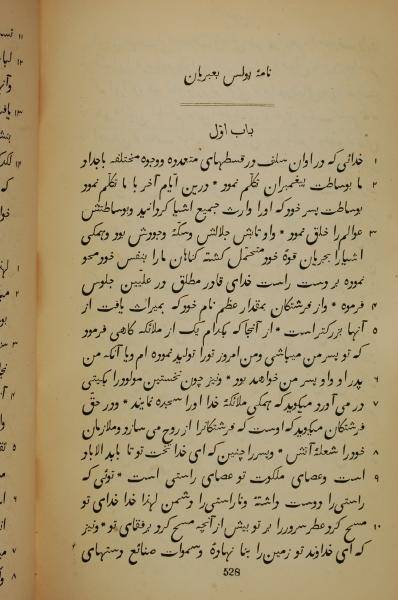 نامهٔ پولس بعبریان
باب اوّل
۱ خدائی که در اوان سلف در قسطهای متعدده و وجوه مختلفه باجداد
۲ ما بوساطت پیغمبران تکلّم نمود * درین ایّام آخر با ما تکلّم نمود
بوساطت پسر خود که او را وارث جمیع اشیا گردانید و بوساطتش
۳ عوالم را خلق نمود * و او تابش جلالش و سکّهٔ وجودش بود و همگی
اشیا را بجریان قوّهٔ خود متحمّل گشته گناهان ما را بنفس خود محو
نموده بر دست راست خدای قادر مطلق در علّیین جلوس
۴ فرموده * و از فرشتگان بمقدار عظم نام خود که بمیراث یافت از
۵ آنها بزرگتر است * از آنجا که بکدام یک از ملائکه گاهی فرمود
که تو پسر من میباشی و من امروز تو را تولید نموده ام و یا آنکه من
۶ پدر او و او پسر من خواهد بود * و نیز چون نخستین مولود را بگیتی
۷ در می آورد میگوید که همگی ملائکهٔ خدا او را سجده نمایند * و در حقّ
فرشتگان میگوید که اوست که فرشتگانرا از روح می سازد و ملازمان
۸ خود را شعلهٔ آتش * و پسر را چنین که ای خدا تخت تو تا بابد الاباد
۹ است و عصای ملکوت تو عصای راستی است * توئی که
راستی را دوست داشته و ناراستی را دشمن لهذا خدا خدای تو
۱۰ مسح کرد عطر سرور را بر تو بیش از آنچه مسح کرد بر رفقای تو * و نیز
که ای خداوند تو زمین را بنا نهادهٔ و سموات صنائع دستهای
528